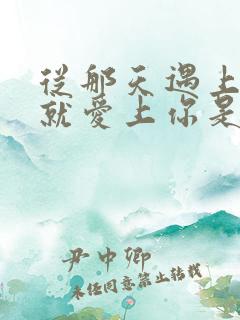 從那天遇上
就愛上你是
尹中卿
未任同意禁止轉載